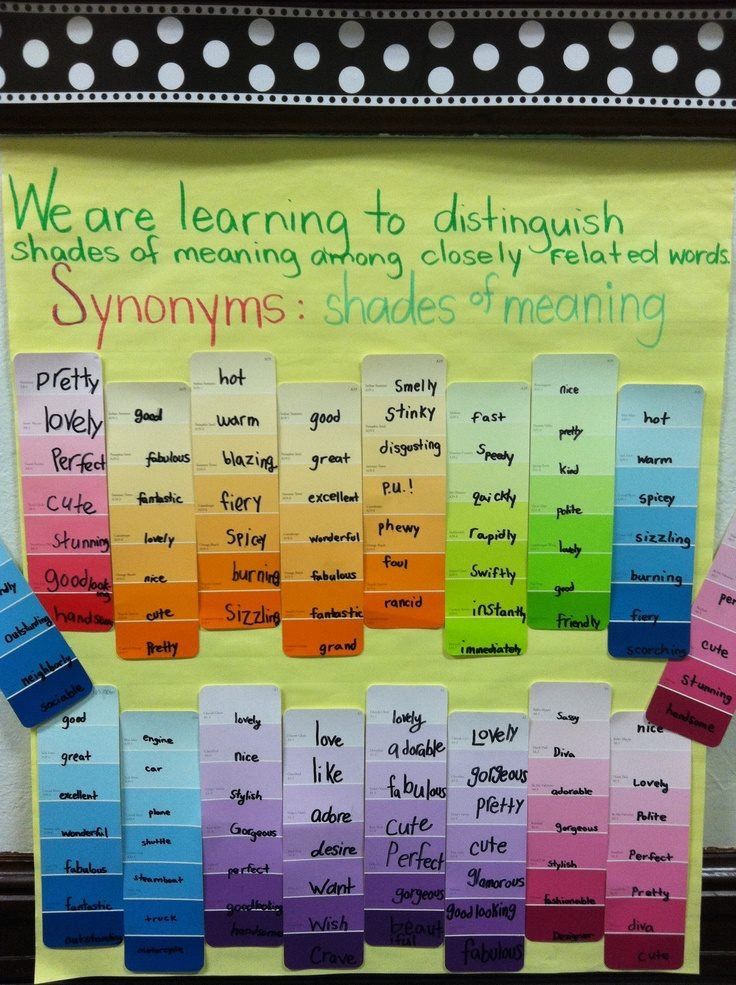 We are learning to distinguish
shades of meaning among closely related words.
Synonyms: shades of meaning
pretty
lovely
Perfect
cute
stunning
goodlooking
handsome
good
fabulous
fantastic
lovely
nice
cute
Pretty
hot
warm
blazing
fiery
Spicy
burning
Sizzling
good
great
excellent
wonderful
fabulous
fantastic
grand
Smelly
stinky
disgusting
p.u.!
phewy
foul
rancid
fast
Speedy
quickly
rapidly
Swiftly
instantly
immediately
nice
pretty
kind
polite
lovely
good
friendly
hot
warm
spicy
sizzling
burning
fiery
scorching
outstunting
neighborly
sociable
cute
stunning
handsome
good
great
excellent
wonderful
fabulous
fantastic
outstanding
engine
car
plane
shuttle
steamboat
truck
motorcycle
lovely
nice
Stylish
Gorgeous
perfect
goodlooking
handsome
love
like
adore
desire
Want
Wish
Crave
lovely
adorable
fabulous
Cute
Perfect
gorgeous
beautiful
Lovely
gorgeous
pretty
cute
glamorous
goodlooking
fabulous
Sassy
Diva
adorable
gorgeous
Stylish
fashionable
Designer
nice
Lovely
Polite
Perfect
Pretty
diva
cute